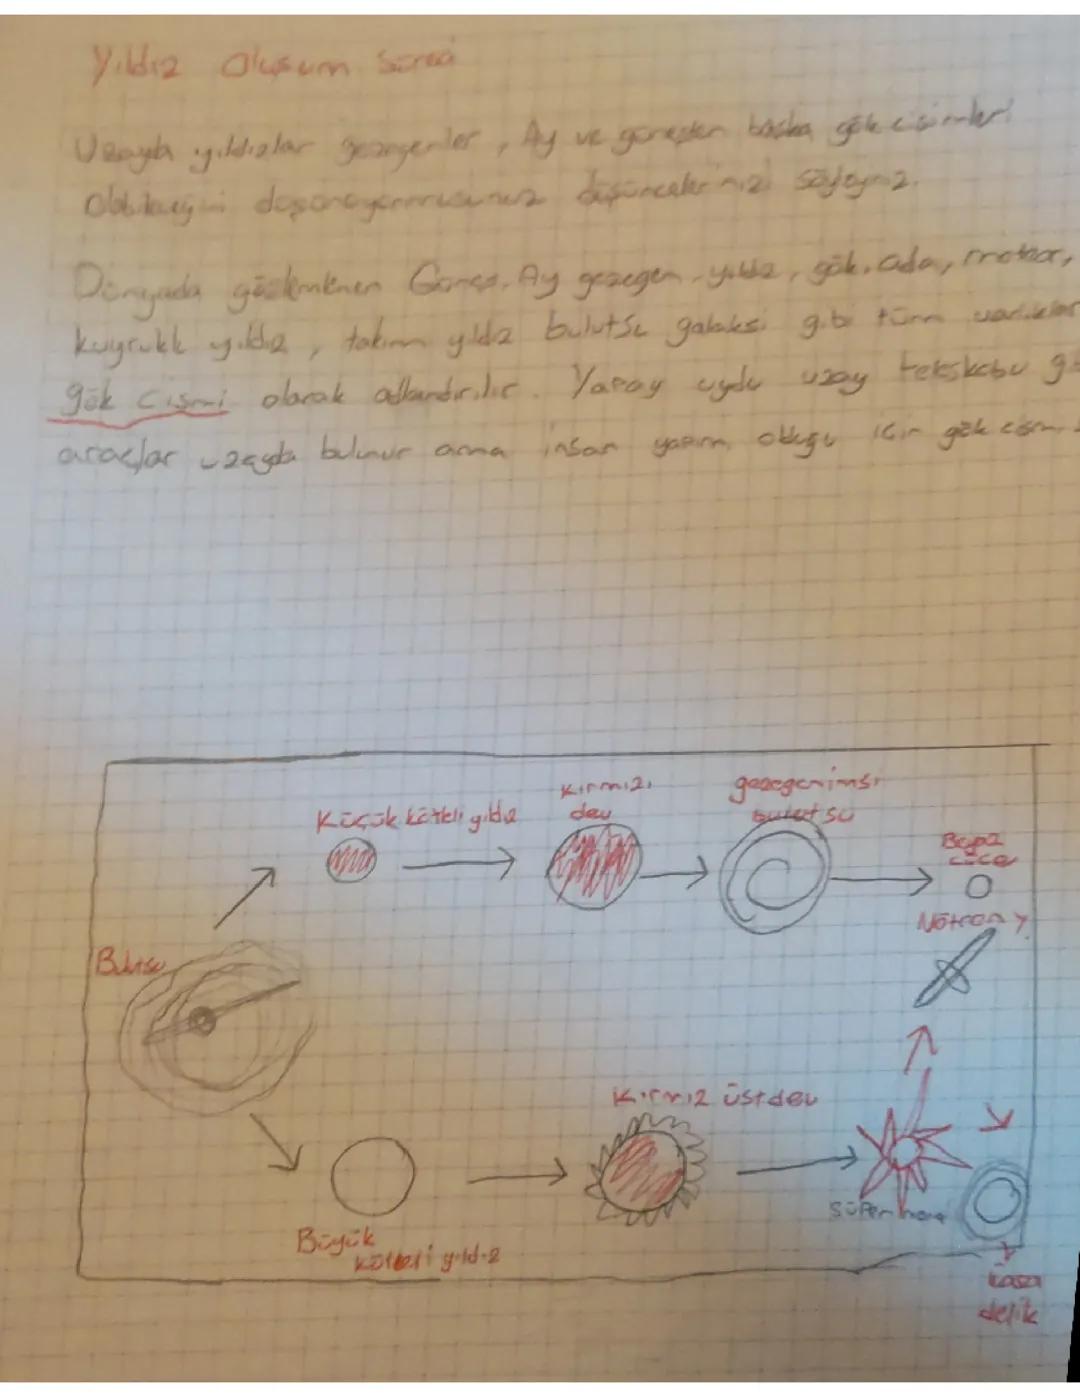 Yıldız Oluşum Süreci
Uzayda yıldızlar gezegenler, Ay ve güneşten başka gök cisimleri
olabileceğini düşünüyormusunuz düşüncelerinizi söyleyiniz.
Dünyada gözlemlenen Güneş, Ay gezegen, yıldız, gök, ada, meteor,
kuyruklu yıldız, takım yıldız bulutsu galaksi gibi tüm varlıklar
gök cismi olarak adlandırılır. Yapay uydu uzay teleskobu
araçlar uzayda bulunur ama insan yapımı olduğu için gök
Küçük kütleli yıldız
kırmızı
dev
gezegenimsi
bulutsu
Beyaz
cüce
Nötron y
Bulutsu
Kırmız üstdev
Büyük
kütleli yıldız
Süpernova
kara
delik